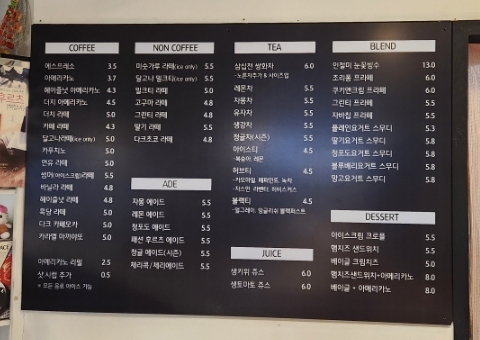 COFFEE
에스프레소 3.5
아메리카노 3.7
헤이즐넛 아메리카노 4.3
더치 아메리카노 4.5
더치 라떼 5.0
카페 라떼 4.3
달고나라떼(ice only) 5.0
카푸치노 5.0
연유 라떼 5.0
썸머(아이스크림)라떼 5.5
바닐라 라떼 4.8
헤이즐넛 라떼 4.8
흑당 라떼 5.0
다크 카페모카 5.0
카라멜 마끼아또 5.0
아메리카노 리필 2.5
샷,시럽 추가 0.5
※ 모든 음료 아이스 가능
NON COFFEE
미숫가루 라떼(ice only) 5.5
달고나 밀크티(ice only) 5.5
밀크티 라떼 5.0
고구마 라떼 4.8
그린티 라떼 4.8
딸기 라떼 5.5
다크초코 라떼 5.5
ADE
자몽 에이드 5.5
레몬 에이드 5.5
청포도 에이드 5.5
패션 후르츠 에이드 5.5
청귤 에이드(시즌) 5.5
체리콕/체리에이드 5.5
TEA
삼십전 쌍화차 6.0
-노른자추가 & 사이즈업
레몬차 5.5
자몽차 5.5
유자차 5.5
생강차 5.5
청귤차(시즌) 5.5
아이스티 4.5
-복숭아, 레몬
허브티 4.5
-카모마일, 페퍼민트, 녹차
자스민, 라벤더, 히비스커스
블랙티 4.5
-얼그레이, 잉글리쉬 블랙퍼스트
JUICE
생키위 쥬스 6.0
생토마토 쥬스 6.0
BLEND
인절미 눈꽃빙수 13.0
초리퐁 프라페 6.0
쿠키앤크림 프라페 6.0
그린티 프라페 5.5
자바칩 프라페 5.5
플레인요거트 스무디 5.3
딸기요거트 스무디 5.8
청포도요거트 스무디 5.8
블루베리요거트 스무디 5.8
망고요거트 스무디 5.8
DESSERT
아이스크림 크로플 5.5
햄치즈 샌드위치 5.5
베이글 크림치즈 5.0
햄치즈샌드위치+아메리카노 8.0
베이글 + 아메리카노 8.0